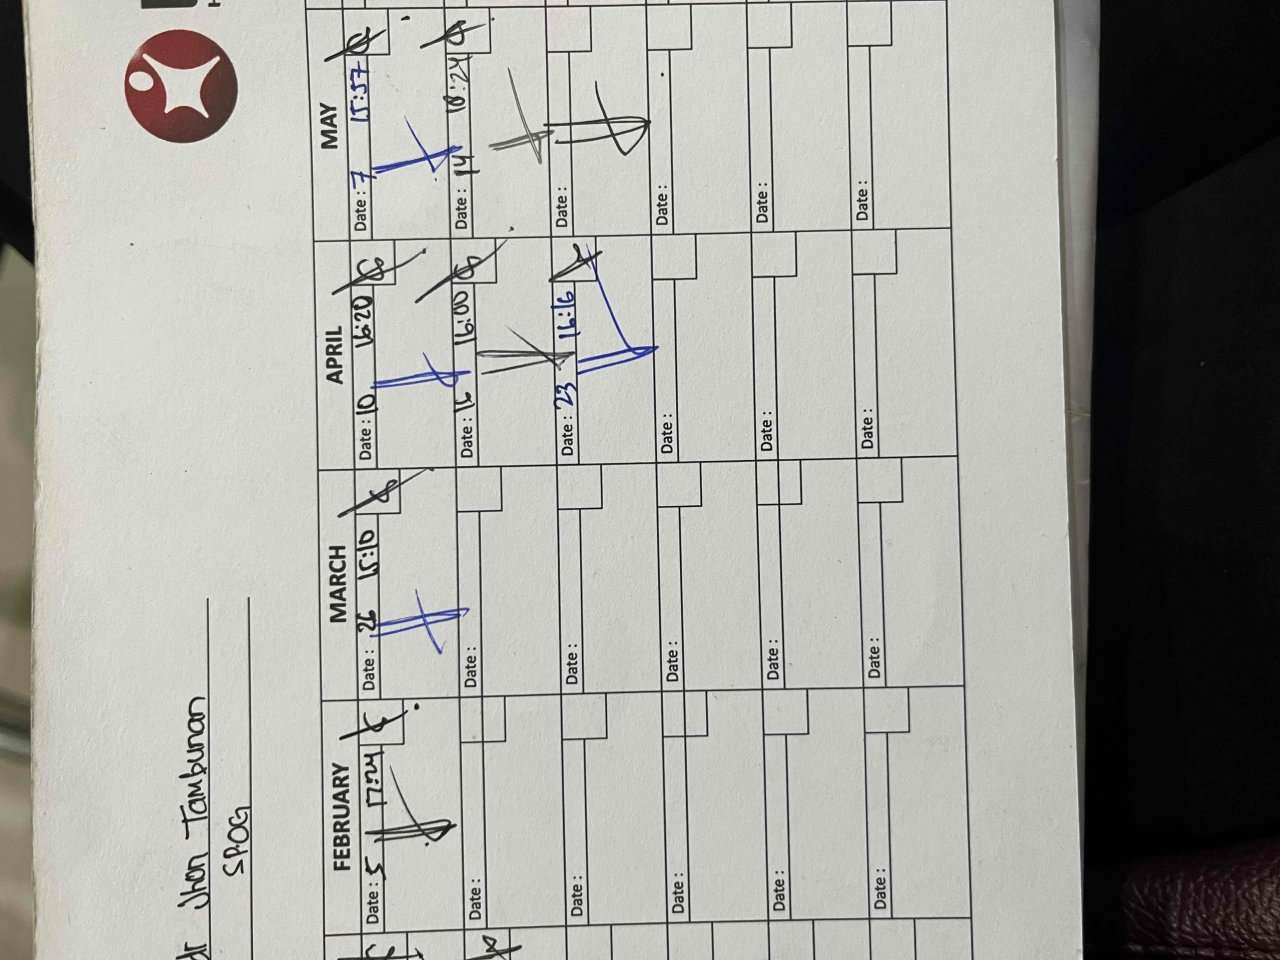 dr Jhon Tambunan
SPOG
FEBRUARY MARCH APRIL MAY
Date : 5 17:24 Date : 26 15:10 Date : 10 16:20 Date : 7 15:57
Date : Date : Date : 16 16:00 Date : 14 18:24
Date : Date : Date : 23 16:16 Date :
Date : Date : Date : Date :
Date : Date : Date : Date :
Date : Date : Date : Date :